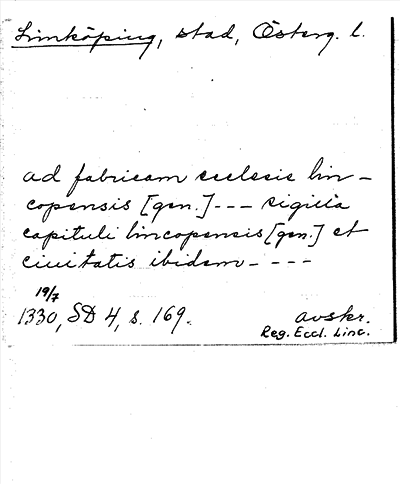 Linköping, stad, Österg. l.
ad fabricam ecclesie lin-
copensis [gen.] --- sigilla
capituli lincopensis [gen.] et
ciuitatis ibidem - - - -
19/7
1330, SD 4, s. 169. avskr.
Reg. Eccl. Linc.